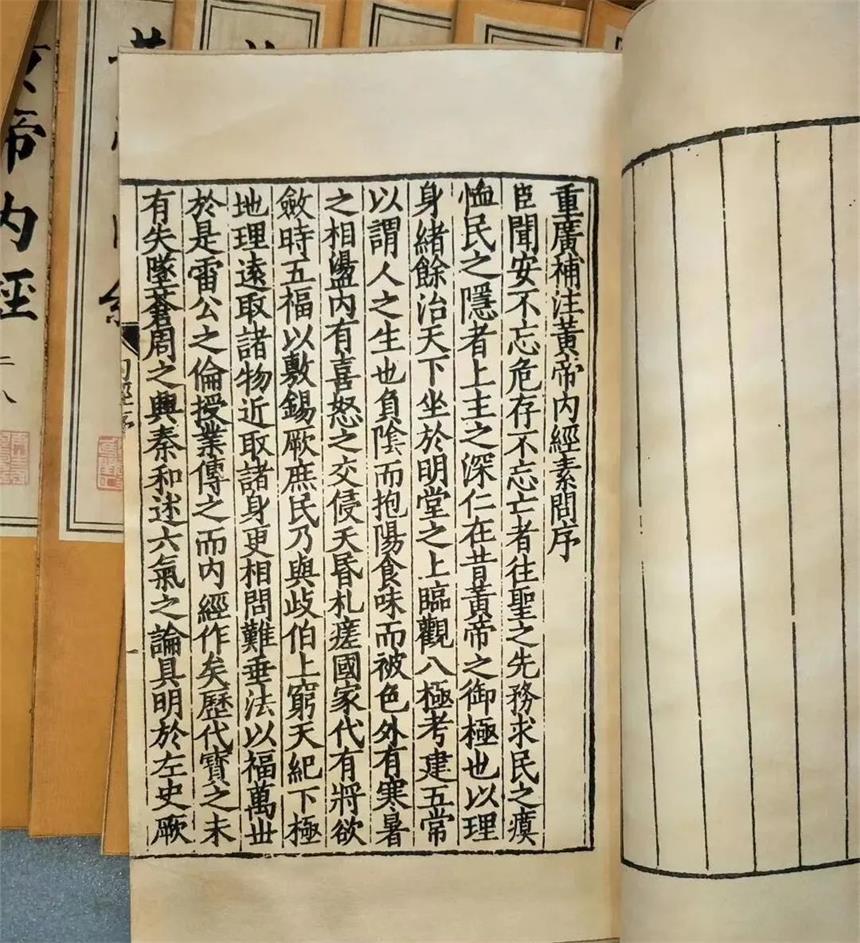 重廣補注黃帝內經素問序
臣聞安不忘危存不忘亡者往聖之先務求民之瘼
恤民之隱者上主之深仁在昔黃帝之御極也以理
身緒餘治天下坐於明堂之上臨觀八極考建五常
以謂人之生也負陰而抱陽食味而被色外有寒暑
之相盪內有喜怒之交侵夭昏札瘥國家代有將欲
斂時五福以敷錫厥庶民乃與歧伯上窮天紀下極
地理遠取諸物近取諸身更相問難垂法以福萬世
於是雷公之倫授業傳之而內經作矣歷代寶之未
有失墜蒼周之興秦和述六氣之論具明於左史厥
內經序
帝內經